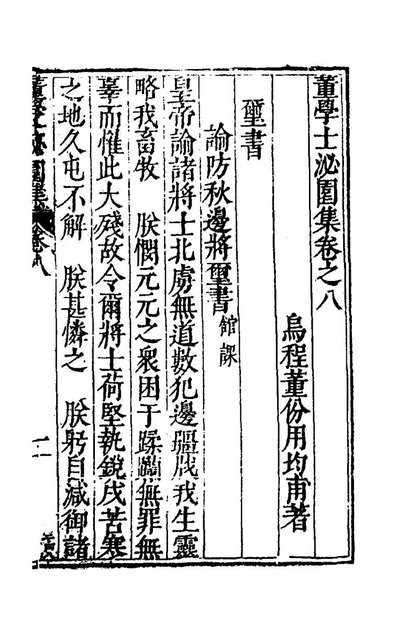 董學士泌園集卷之八
烏程董份用均甫著
璽書
諭防秋邊將璽書館課
皇帝諭諸將士北虜無道數犯邊疆戕我生靈
略我畜牧 朕憫元元之衆困于蹂躪無罪無
辜而惟此大殘故令爾將士荷堅執銳戍苦寒
之地久屯不解 朕甚憐之 朕躬自減御諸
董學士泌園集 卷八